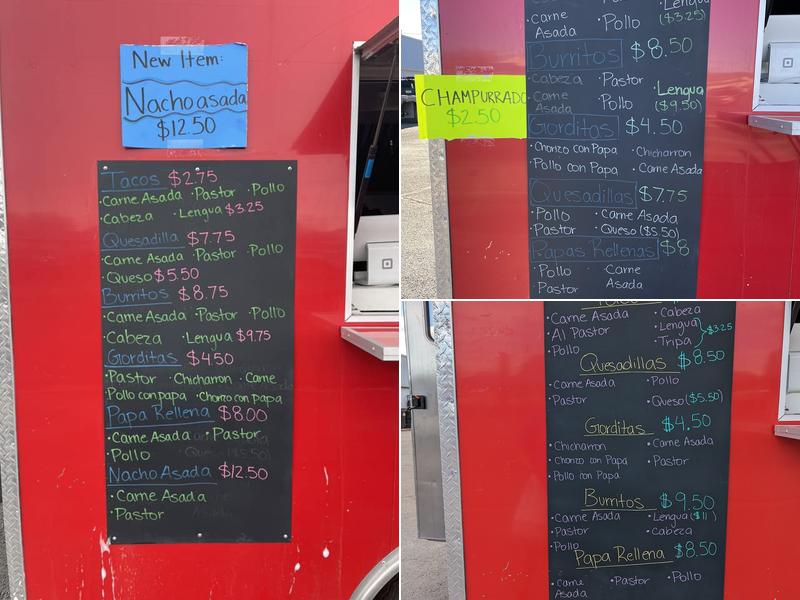 New Item:
Nacho asada
$12.50
Tacos $2.75
·Carne Asada ·Pastor ·Pollo
·Cabeza ·Lengua $3.25
Quesadilla $7.75
·Carne Asada ·Pastor ·Pollo
·Queso $5.50
Burritos $8.75
·Carne Asada ·Pastor ·Pollo
·Cabeza ·Lengua $9.75
Gorditas $4.50
·Pastor ·Chicharron ·Carne
·Pollo con papa ·Chorizo con Papa
Papa Rellena $8.00
·Carne Asada ·Pastor
·Pollo
Nacho Asada $12.50
·Carne Asada
·Pastor
·Carne Asada ·Pollo Lengua ($3.25)
Burritos $8.50
·Cabeza ·Pastor ·Lengua
·Carne Asada ·Pollo ($9.50)
CHAMPURRADO
$2.50
Gorditos $4.50
·Chorizo con Papa ·Chicharron
·Pollo con Papa ·Carne Asada
Quesadillas $7.75
·Pollo ·Carne Asada
·Pastor ·Queso ($5.50)
Papas Rellenas $8
·Pollo ·Carne Asada
·Pastor
·Carne Asada ·Cabeza
·Al Pastor ·Lengua $3.25
·Pollo ·Tripa
Quesadillas $8.50
·Carne Asada ·Pollo
·Pastor ·Queso ($5.50)
Gorditas $4.50
·Chicharron ·Carne Asada
·Chorizo con Papa ·Pastor
·Pollo con Papa
Burritos $9.50
·Carne Asada ·Lengua ($11)
·Pastor ·Cabeza
·Pollo
Papa Rellena $8.50
·Carne Asada ·Pastor ·Pollo